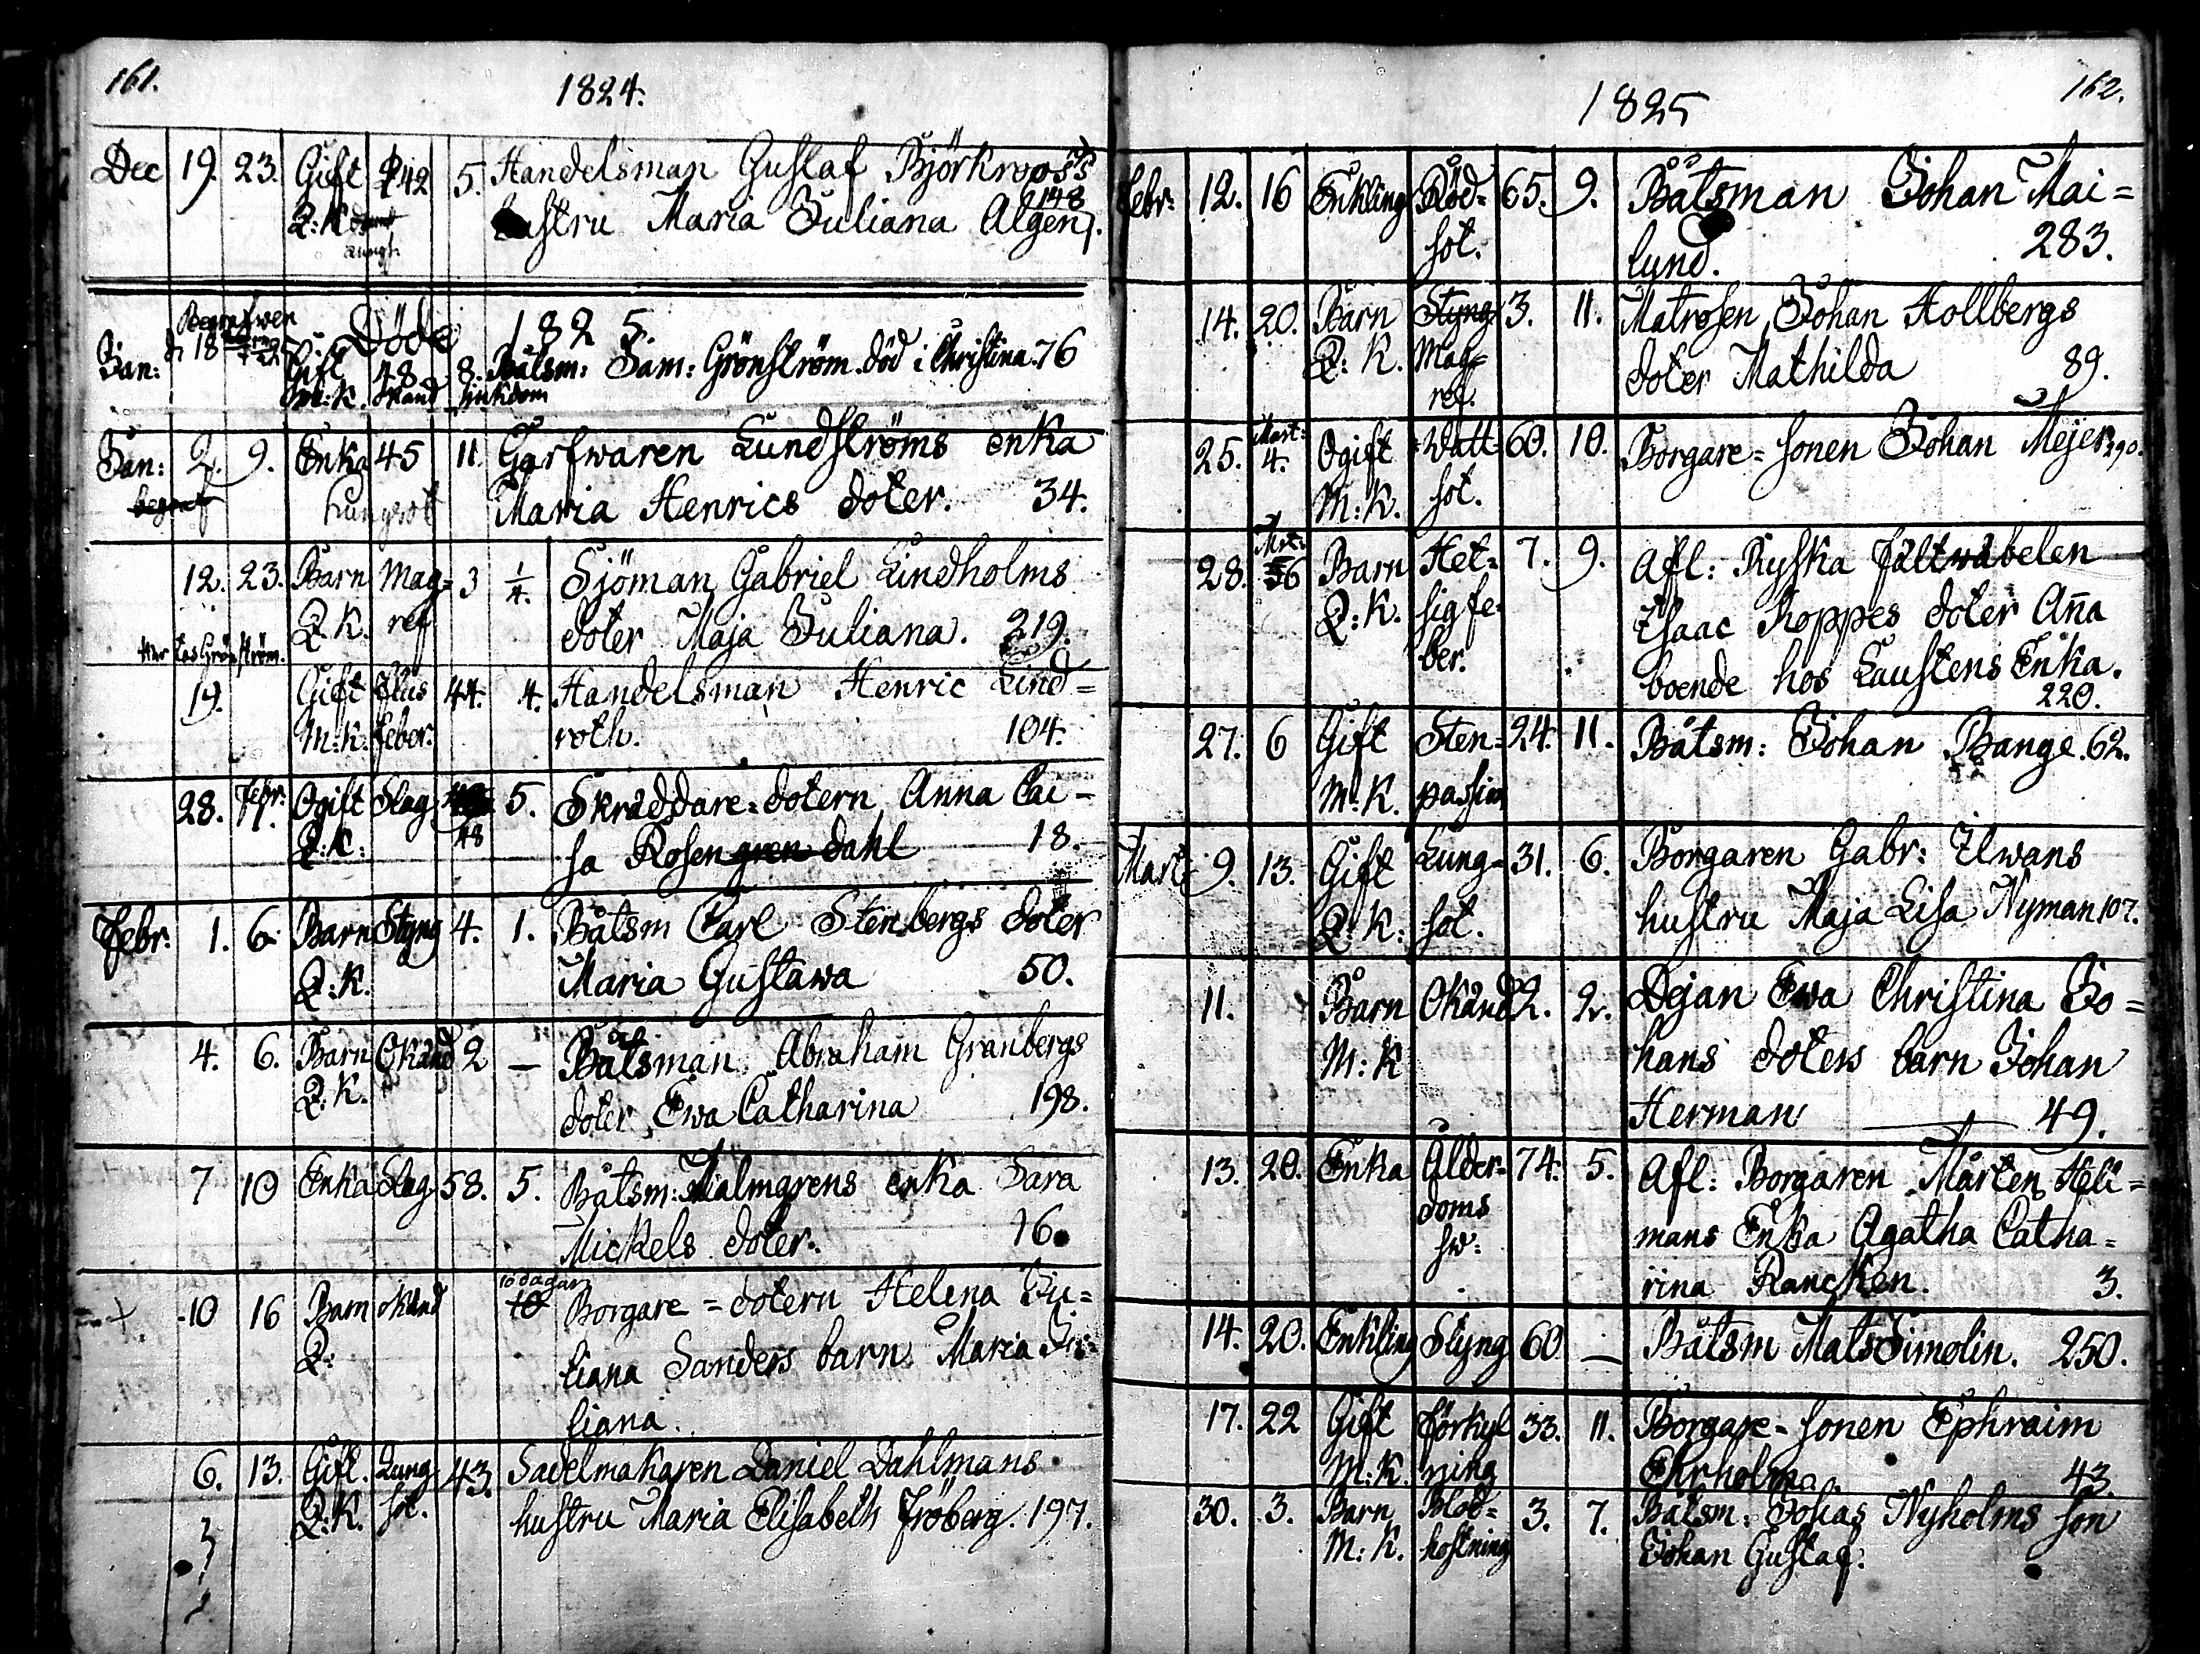 161.
1824.
Dec 19. 23. Gift 42 5. Handelsman Gustaf Björkroos's
Q: K hustru Maria Juliana Algen. 148
Begrafwen
Döde 1825
Jan: d: 18 Gift 48 8. Båtsm: Sam: Grönström. död i Christina. 76
M: K. okänd sjukdom
Jan: 2. 9. Enka 45 11. Garfwaren Lundströms enka
begraf lungsot Maria Henrics doter. 34.
12. 23. Barn Mag= 3 1/4. Sjöman Gabriel Lindholms
Q. K. ref doter Maja Juliana. 219.
Grönström.
19. Gift Flus 44. 4. Handelsman Henric Lind=
M: K. feber. roth. 104.
28. Febr: 1. Ogift Slag 5. Skräddare=dotern Anna Cai=
Q: K: 48 sa Rosengren dahl 18.
Febr: 1. 6. Barn Styng 4. 1. Båtsm Carl Stenbergs doter
Q: K. Maria Gustawa 50.
4. 6. Barn Okänd 2 — Båtsman Abraham Granbergs
Q. K. doter Ewa Catharina 198.
7 10 Enka Slag 58. 5. Båtsm: Malmgrens enka Sara
Mickels doter. 16.
10 dagar
10 16 Barn okänd 10 Borgare=dotern Helena Ju=
Q: liana Sanders barn Maria Ju=
liana.
6. 13. Gift. Lung 43. Sadelmakaren Daniel Dahlmans
Q: K. sot. hustru Maria Elisabeth Fröberg. 197.
162.
1825
Febr: 12. 16 Enkling Röd= 65. 9. Båtsman Johan Mai=
sot. lund. 283.
14. 20. Barn Styng 3. 11. Matrosen Johan Hollbergs
Q: K. Mag= doter Mathilda 89.
ref.
25. Mart: 4. Ogift Watt= 60. 10. Borgare=sonen Johan Mejer 290.
M: K. sot.
28. Mrt: 6 Barn Het= 7. 9. Afl: Ryska fältwäbelen
Q: K. sig fe= Isaac Koppes doter Anna
ber. boende hos Laustens Enka.
220.
27. 6 Gift Sten= 24. 11. Båtsm: Johan Bange. 62.
M: K. passion
Mart: 9. 13. Gift Lung= 31. 6. Borgaren Gabr: Ilwans
Q: K: sot. hustru Maja Lisa Nyman 107.
11. Barn Okänd 2. 2. Dejan Ewa Christina Jo=
M: K hans doters barn Johan
Herman — 49.
13. 20. Enka Ålder= 74. 5. Afl: Borgaren Mårten Heli=
doms mans Enka Agatha Catha=
sw: rina Rancken. 3.
14. 20. Enkling Styng 60 — Båtsm Mats Simolin. 250.
17. 22 Gift Förkyl 33. 11. Borgare=sonen Ephraim
M: K. ning Ehrholm. 43.
30. 3. Barn Blod= 3. 7. Båtsm: Josias Nyholms son
M: K. hostning Johan Gustaf.